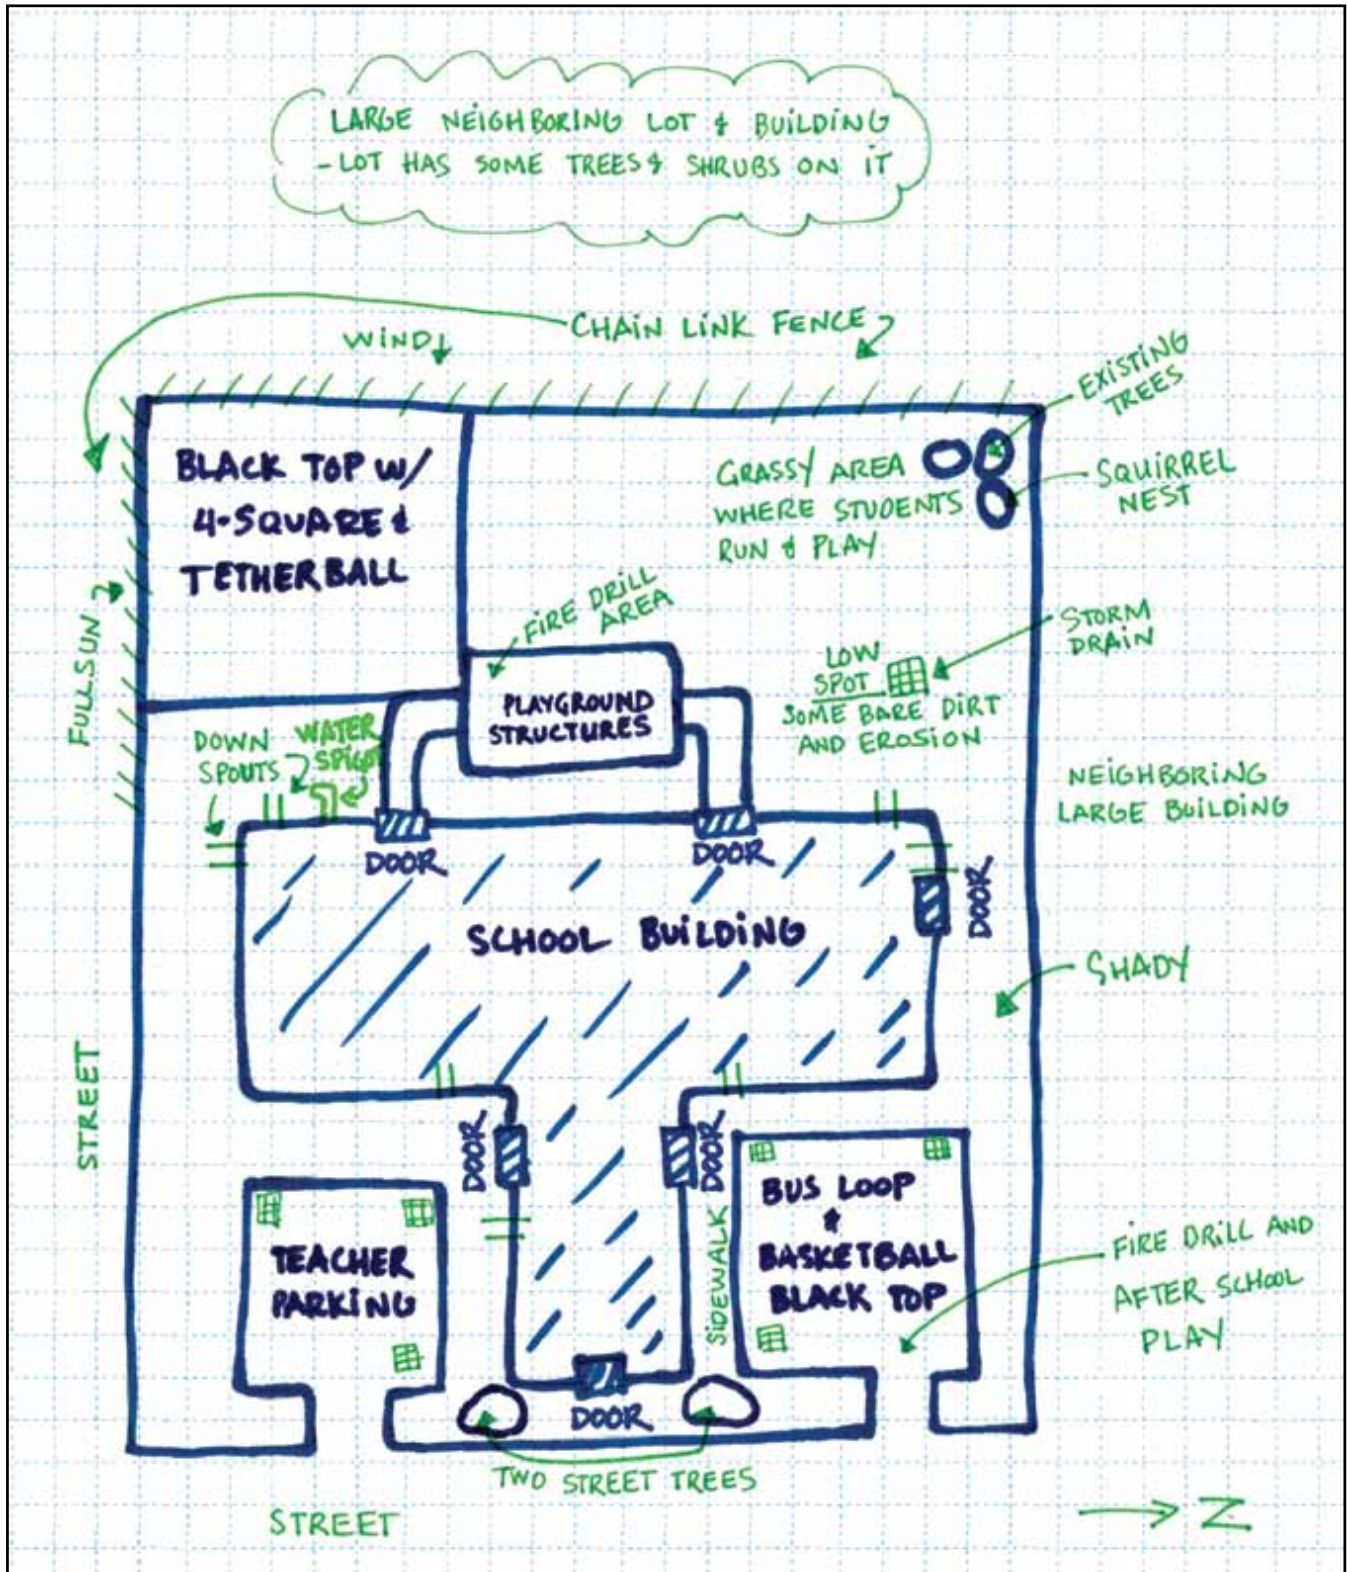 LARGE NEIGHBORING LOT & BUILDING
- LOT HAS SOME TREES & SHRUBS ON IT
CHAIN LINK FENCE
WIND
EXISTING
TREES
BLACK TOP W/
4-SQUARE &
TETHERBALL
GRASSY AREA
WHERE STUDENTS
RUN & PLAY
SQUIRREL
NEST
FIRE DRILL
AREA
STORM
DRAIN
FULL SUN
LOW
SPOT
SOME BARE DIRT
AND EROSION
PLAYGROUND
STRUCTURES
DOWN
SPOUTS
WATER
SPIGOT
NEIGHBORING
LARGE BUILDING
DOOR
DOOR
DOOR
SCHOOL BUILDING
SHADY
STREET
DOOR
DOOR
BUS LOOP
&
BASKETBALL
BLACK TOP
TEACHER
PARKING
SIDEWALK
FIRE DRILL AND
AFTER SCHOOL
PLAY
DOOR
TWO STREET TREES
STREET
N